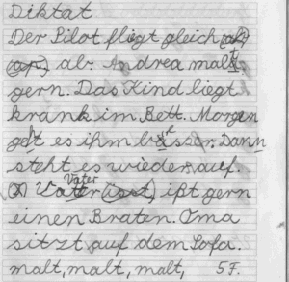 Diktat
Der Pilot fliegt gleich (ab)
(ap) ab. Andrea malt
gern. Das Kind liegt
krank im Bett. Morgen
geht es ihm besser. Dann
steht es wieder auf.
Vater
(X) Vatter (isst) ißt gern
einen Braten. Oma
sitzt auf dem Sofa.
malt, malt, malt, 5 F.